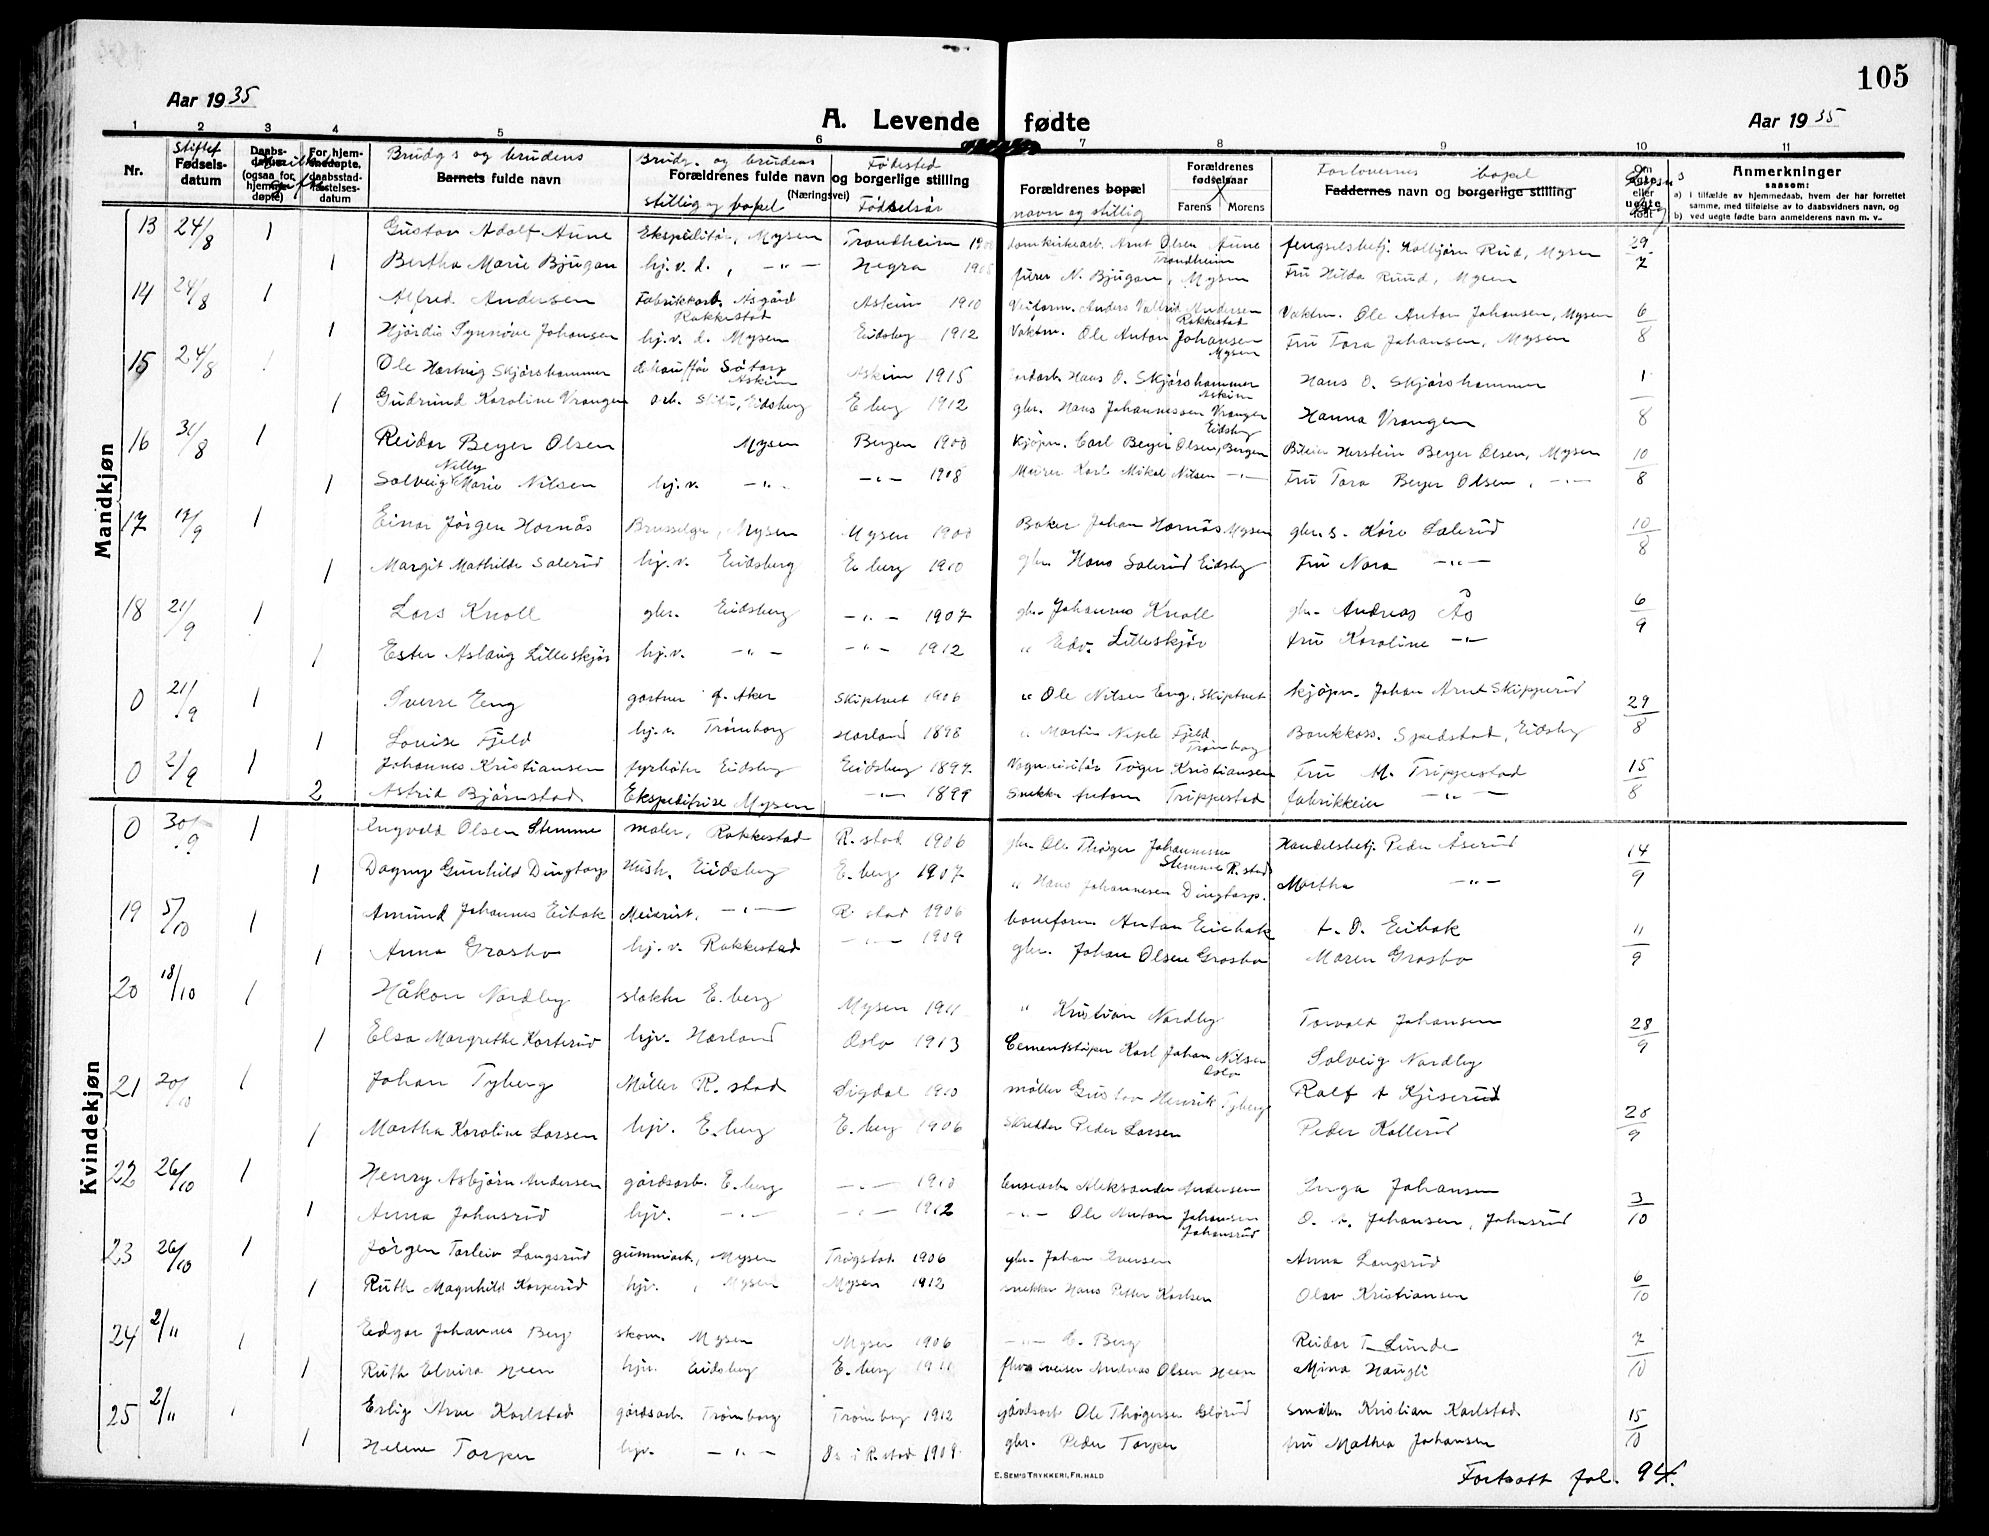 105
Aar 1935
Aar 1935
A. Levende fødte
1 2 3 4 5 6 7 8 9 10 11
Nr.
Stiftet
Fødsels-
datum
Daabs-
(ogsaa for
hjemme-
døpte)
For hjem-
medøpte,
daabsstad-
fæstelses-
datum
Brudg.s og brudens
Barnets fulde navn
Brudg. og brudens Fødested
Forældrenes fulde navn og borgerlige stilling
(Næringsvei)
stillig og bopel Fødselsår
Forældrenes bopæl
navn og stillig
Forældrenes
fødselsaar
Farens Morens
Forlovernes bopel
Faddernes navn og borgerlige stilling
Om
eller
uegte
født
Anmerkninger
saasom:
a) i tilfælde av hjemmedaab, hvem der har forrettet
samme, med tilføielse av to daabsvidners navn, og
b) ved uegte fødte barn anmelderens navn m. v.
Mandkjøn
13 24/8 1 Gustav Adolf Aune Ekspeditör, Mysen Trondheim Arnt Olsen Aune Kolbjørn Rud, Mysen 29/7
Trondheim
1 Bertha Marie Bjugan hj.v.d., -"- Hegra N. Bjugan, Mysen Fru Hilda Ruud, Mysen
14 24/8 1 Alfred Andersen Fabrikkarb. Åsgård Askim 1910 Anders Andersen Vaktm. Ole Anton Johansen, Mysen 6/8
Rakkestad Rakkestad
1 Hjördis Synnöve Johansen hj.v.d. Mysen Eidsberg 1912 Vaktm. Ole Anton Johansen Fru Tora Johansen, Mysen
Mysen
15 24/8 1 Ole Hartvig Skjørshammer Askim 1915 Hans O. Skjørshammer Hans O. Skjørshammer 1/8
Askim Askim
1 Gudrund Karoline Vrangen Eidsberg E berg 1912 gbr. Hans Johannessen Vrangen Hanna Vrangen
Eidsberg
16 31/8 1 Reidar Beyer Olsen Mysen Bergen 1900 kjøpm. Carl Beyer Olsen, Bergen Herstein Beyer Olsen, Mysen 10/8
Nilly
1 Solveig Marie Nilsen hj.v. -"- -"- 1908 Karl Mikal Nilsen -"- Fru Tora Beyer Olsen, -"-
17 1 Einar Jörgen Hornäs Mysen Mysen 1900 Baker Johan Hornäs Mysen gbr. s. Kåre Salerud 10/8
1 Margit Mathilde Salerud hj.v. Eidsberg E berg 1910 gbr. Hans Salerud Eidsberg Fru Nora -"-
18 21/9 1 Lars Knoll gbr. Eidsberg -"- 1907 gbr. Johannes Knoll gbr. Andreas Ås 6/9
1 Ester Aslaug Lilleskjör hj.v. -"- -"- 1912 " Edv. Lilleskjör fru Karoline -"-
0 21/9 1 Sverre Eng gartner Aker Skiptvet 1906 " Ole Nilsen Eng, Skiptvet kjøpm. Johan Arnt Skipperud 29/8
1 Louise Fjeld hj.v. Trömborg 1898 " Martin Fjeld Spedstad, Eidsberg
Trömborg
0 1 Johannes Kristiansen fyrböter Eidsberg Eidsberg 1897. Kristiansen Fru M. Trippestad 15/8
2 Astrid Björnstad Ekspeditrise Mysen -"- 1899 Anton Trippestad fabrikkeier -"-
Kvindekjøn
0 30/9 1 Ingvald Olsen Stemme maler, Rakkestad R. stad 1906 gbr. Ole Thøger Johannesen Handelsbetj. Peder Åserud 14/9
Stemme R. stad
1 Dagny Gunhild Dingtorp Hush. Eidsberg E. berg 1907 " Hans Johannesen Dingtorp. Martha -"-
19 5/10 1 Amund Johannes Eibak Meierist, -"- R. stad 1906 Anton Eibak Eibak 11/9
1 Anna Grasbo hj.v. Rakkestad -"- 1909 gbr. Johan Olsen Grasbo Maren Grasbo
20 18/10 1 Håkon Nordby E. berg Mysen 1911 " Kristian Nordby Torvald Johansen 28/9
1 Elsa Margrethe Korterud hjv. Oslo 1913 Cementstöper Karl Johan Nilsen Solveig Nordby
Oslo
21 20/10 1 Johan Tyberg Möller R. stad Sigdal 1910 möller Gustav Henrik Tyberg Ralf Kjiserud
1 Martha Karoline Larsen hjv. E. berg E. berg 1906 Skredder Peder Larsen Peder Kallerud 28/9
22 26/10 1 Henry Asbjörn Andersen gårdsarb. E. berg -"- 1910 Aleksander Andersen Inga Johansen 3/10
1 Anna Johnsrud hjv. -"- -"- 1912 -"- Ole Anton Johansen O. A. Johansen, Johnsrud
Johnsrud
23 26/10 1 Jörgen Torleiv Langsrud gummiarb., Mysen Trögstad 1906 gbr. Johan Iversen Anna Langsrud 6/10
1 Ruth Magnhild Korperud hjv. , Mysen Mysen 1913 snekker Hans Petter Karlsen Olav Kristiansen
24 2/11 1 Edgar Johannes Berg skom. Mysen Mysen 1906 -"- Berg Reidar T. Lunde 7/10
1 Ruth Elvira Heen hjv. Eidsberg E. berg 1911 Andreas Olsen Heen Mina Haugli
25 2/11 1 Erling Arve Karlstad gårdsarb. Trömborg Trömborg 1912 gårdsarb Ole Thøgersen Glörud Kristian Karlstad 15/10
1 Helene Torper hjv. -"- Os i R. stad 1908. gbr. Peder Torper fru Mathea Johansen
E. SEM'S TRYKKERI, FR.HALD
Fortsatt fol. 94.